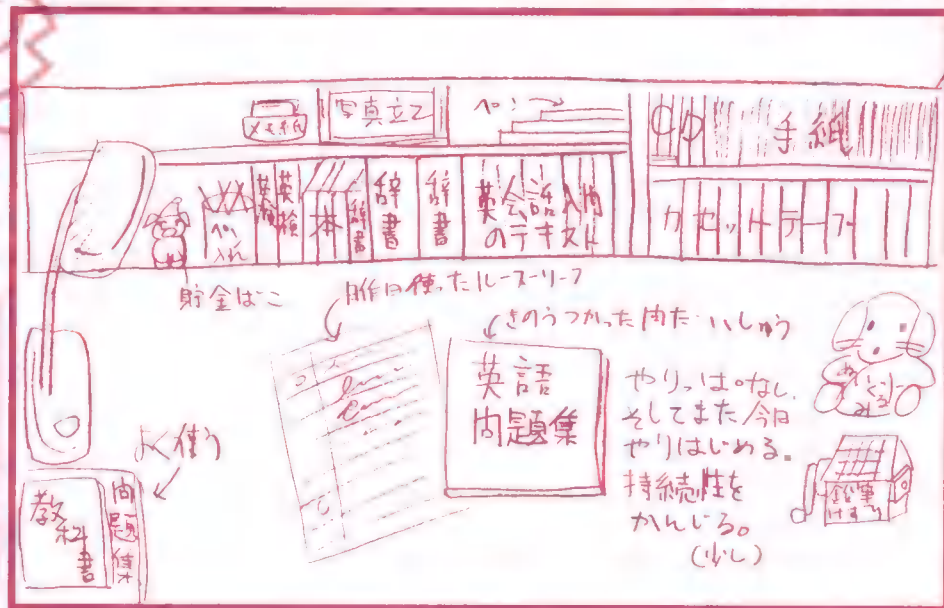 メモ紙
写真立て
ペン
手紙
ペン
入れ
英検
英検
本
辞書
辞書
辞書
英会話入門
のテキスト
カセットテープ
貯金ばこ
昨日使ったルーズリーフ
きのうつかった問だいしゅう
英語
問題集
やりっぱなし、
そしてまた今日
やりはじめる。
持続性を
かんじる。
(少し)
ぬいぐるみ
鉛筆
けずり
よく使う
教科書
問題集